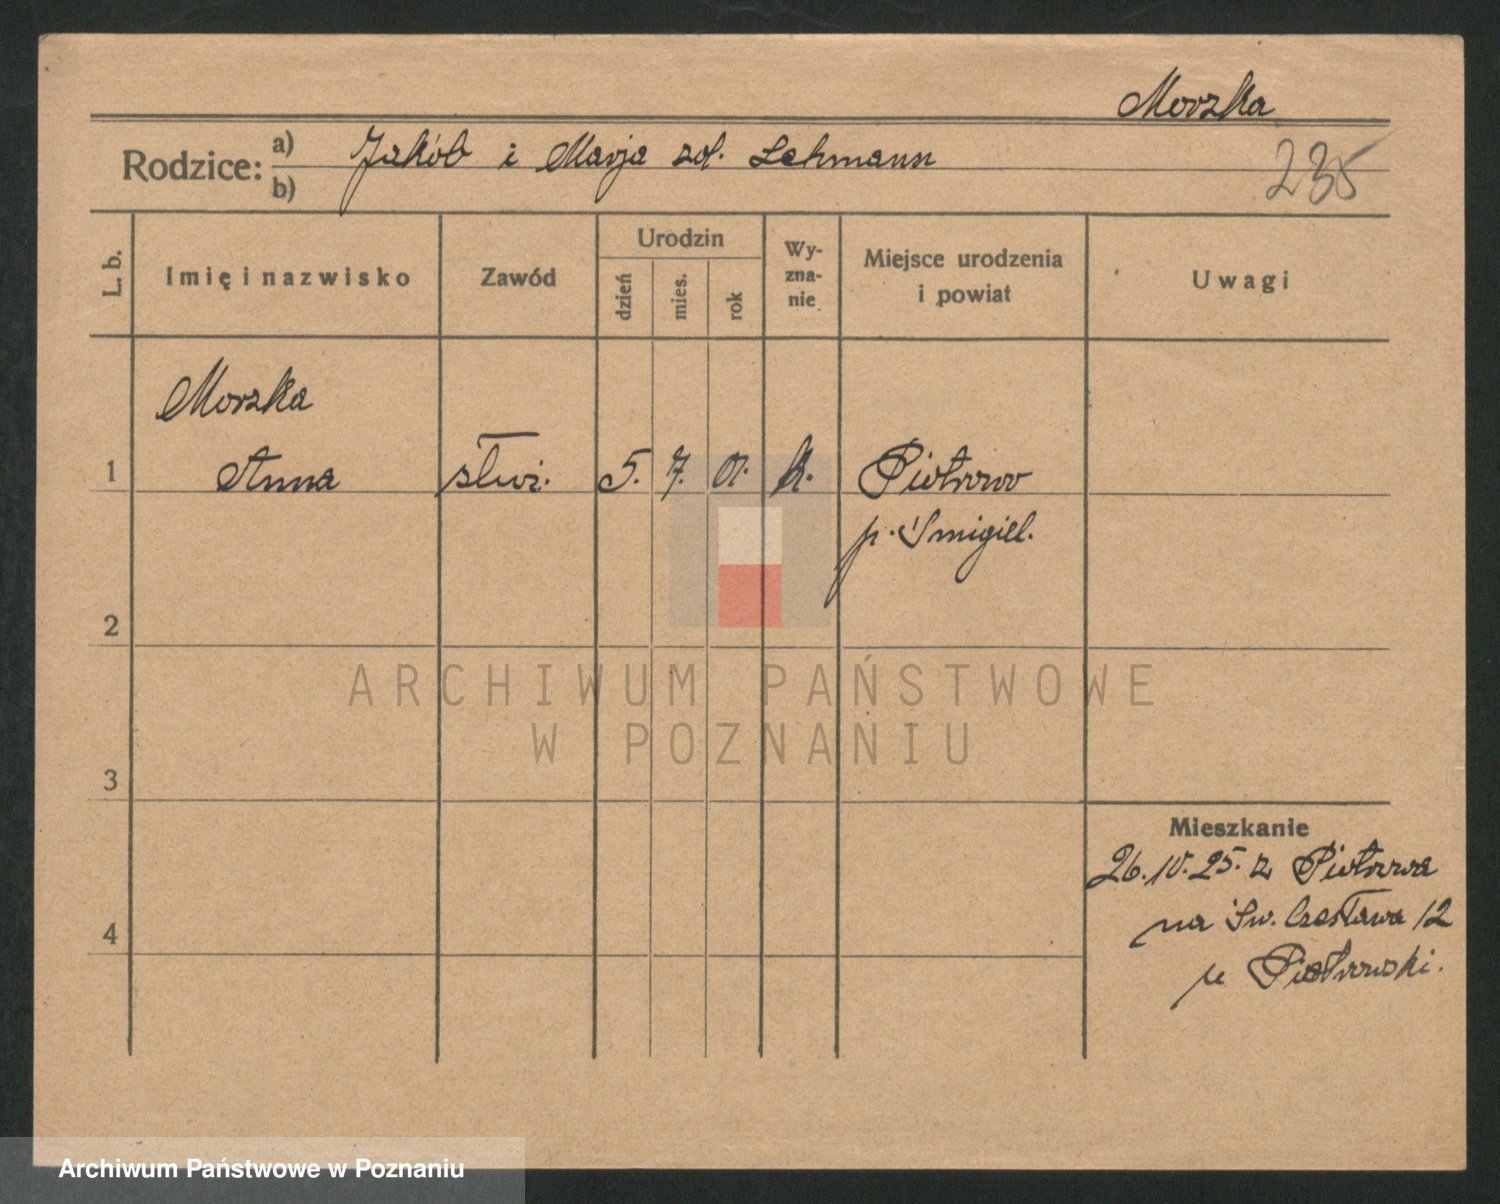 Morzka
235
Rodzice: a) Jakób i Marja zd. Lehmann
b)
L. b.
Imię i nazwisko
Zawód
Urodzin
dzień
mies.
rok
Wy-
zna-
nie
Miejsce urodzenia
i powiat
Uwagi
Morzka
1 Anna służ. 5. 7. 01. k. Piotrowo
p. Śmigiel.
2
3
4
Mieszkanie
26.10.25. z Piotrowa
na Św. Czesława 12
u Piotrowski.
ARCHIWUM PAŃSTWOWE
W POZNANIU
Archiwum Państwowe w Poznaniu